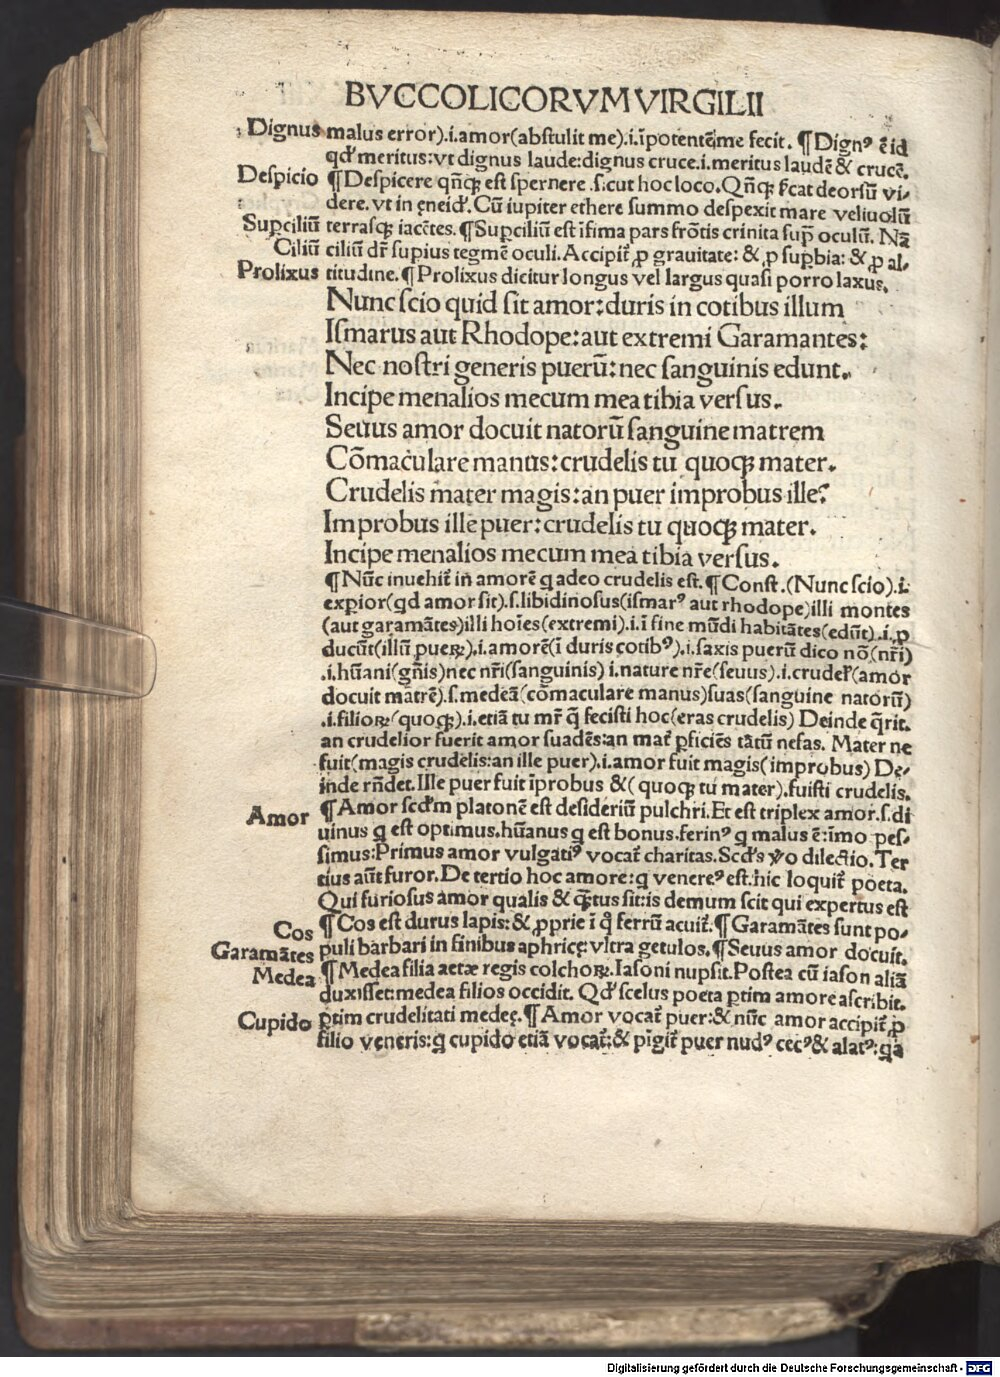 BVCCOLICORVM VIRGILII
Dignus malus error).i.amor(abſtulit me).i.īpotentē me fecit. ¶Dignꝰ ē id
qd' meritus:vt dignus laude:dignus cruce.i.meritus laudē & crucē.
Deſpicio ¶Deſpicere qn̄qꝫ eſt ſpernere .ſicut hoc loco.Qn̄qꝫ ſ̄cat deorſū vi⸗
dere.vt in ęneid'.Cū iupiter ethere ſummo deſpexit mare veliuolū
Suꝑciliū terraſqꝫ iacētes.¶Suꝑciliū eſt īfima pars frōtis crinita ſuꝑ oculū. Nā
Ciliū ciliū dr̄ ſupius tegmē oculi.Accipit̄ ꝓ grauitate: & ꝓ ſuꝑbia: & ꝓ al⸗
Prolixus titudine.¶Prolixus dicitur longus vel largus quaſi porro laxus.
Nunc ſcio quid ſit amor:duris in cotibus illum
Iſmarus aut Rhodope:aut extremi Garamantes:
Nec noſtri generis puerū:nec ſanguinis edunt.
Incipe menalios mecum mea tibia verſus.
Seuus amor docuit natorū ſanguine matrem
Cōmaculare manus:crudelis tu quoqꝫ mater.
Crudelis mater magis:an puer improbus ille?
Improbus ille puer:crudelis tu quoqꝫ mater.
Incipe menalios mecum mea tibia verſus.
¶Nūc inuehit̄ in amorē q adeo crudelis eſt.¶Conſt.(Nunc ſcio).i.
exꝑior(qd amor ſit).ſ.libidinoſus(iſmarꝰ aut rhodope)illi montes
(aut garamātes)illi hoīes(extremi).i.ī fine mūdi habitātes(edūt).i.ꝓ
ducūt(illū pueꝝ).i.amorē(ī duris cotibꝰ).i.ſaxis puerū dico nō(nr̄i)
.i.hūani(gn̄is)nec nr̄i(ſanguinis) i.nature nr̄e(ſeuus).i.crudel'(amor
docuit matrē).ſ.medeā(cōmaculare manus)ſuas(ſanguine natorū)
.i.filioꝝ(quoqꝫ).i.etiā tu mr̄ q̄ feciſti hoc(eras crudelis) Deinde q̄rit.
an crudelior fuerit amor ſuadēs:an mat̄ ꝑficiēs tātū nefas. Mater ne
fuit(magis crudelis:an ille puer).i.amor fuit magis(improbus) De⸗
inde rn̄det.Ille puer fuit īprobus &( quoqꝫ tu mater).fuiſti crudelis.
Amor ¶Amor ſcd'm platonē eſt deſideriū pulchri.Et eſt triplex amor.ſ.di
uinus q eſt optimus.hūanus q eſt bonus.ferinꝰ q malus ē:īmo peſ⸗
ſimus:Primus amor vulgatiꝰ vocat̄ charitas.Scd's ỽo dilectio.Ter
tius aūt furor.De tertio hoc amore:q venereꝰ eſt.hic loquit̄ poeta.
Qui furioſus amor qualis & q̄tus ſit:is demum ſcit qui expertus eſt
Cos ¶Cos eſt durus lapis:& ꝓprie ī q̊ ferrū acuit̄.¶Garamātes ſunt po⸗
Garamātes puli barbari in finibus aphricę:vltra getulos.¶Seuus amor docuit.
Medea ¶Medea filia aetæ regis colchoꝝ.Iaſoni nupſit.Poſtea cū iaſon aliā
duxiſſet:medea filios occidit. Qd' ſcelus poeta ꝑtim amore aſcribit.
Cupido ꝑtim crudelitati medeę.¶Amor vocat̄ puer:& nūc amor accipit̄ ꝓ
filio veneris:q cupido etiā vocat̄:& pīgit̄ puer nudꝰ cecꝰ & alatꝰ:qa
Digitalisierung gefördert durch die Deutsche Forschungsgemeinschaft - DFG